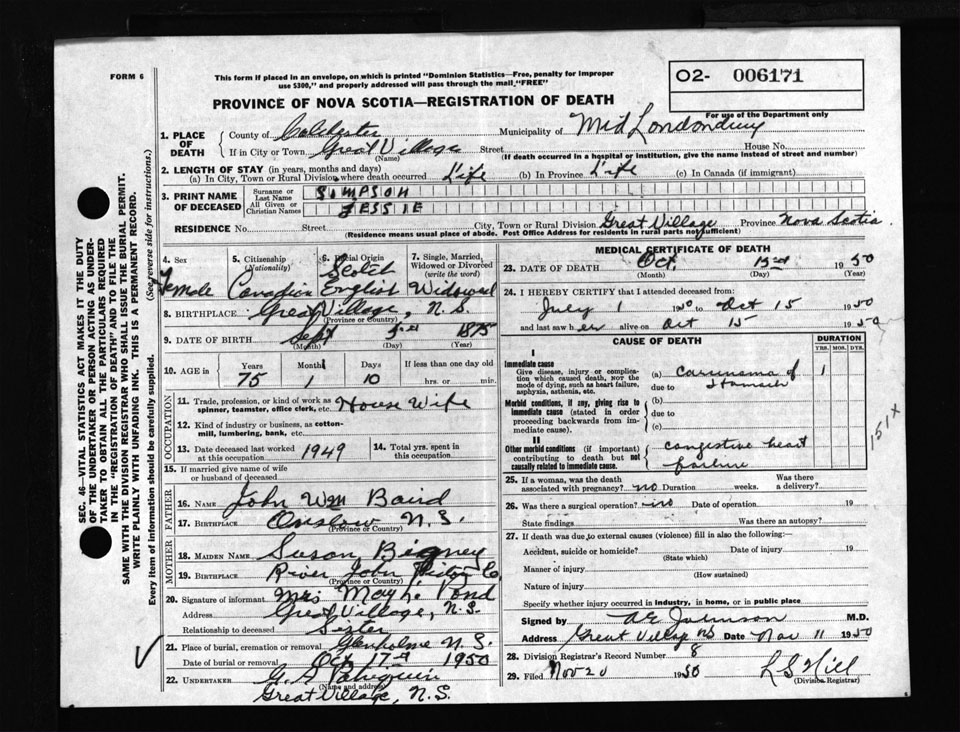 FORM 6
This form if placed in an envelope, on which is printed "Dominion Statistics—Free, penalty for improper
use $300," and properly addressed will pass through the mail "FREE"
O2- 006171
For use of the Department only
PROVINCE OF NOVA SCOTIA—REGISTRATION OF DEATH
1. PLACE OF DEATH
County of Colchester Municipality of Mid Londonderry
If in City or Town Great Village Street House No.
(Name) (If death occurred in a hospital or institution, give the name instead of street and number)
2. LENGTH OF STAY (in years, months and days)
(a) In City, Town or Rural Division where death occurred Life (b) In Province Life (c) In Canada (if immigrant)
3. PRINT NAME OF DECEASED
Surname or Last Name SIMPSON
All Given or Christian Names JESSIE
RESIDENCE No. Street City, Town or Rural Division Great Village Province Nova Scotia
(Residence means usual place of abode. Post Office Address for residents in rural parts not sufficient)
4. Sex Female
5. Citizenship (Nationality) Canadian
6. Racial Origin Scotch English
7. Single, Married, Widowed or Divorced (write the word) Widowed
8. BIRTHPLACE Great Village, N.S.
(Province or Country)
9. DATE OF BIRTH Sept 1875
(Month) (Day) (Year)
10. AGE in Years 75 Months 1 Days 10 If less than one day old hrs. or min.
OCCUPATION
11. Trade, profession, or kind of work as spinner, teamster, office clerk, etc. House Wife
12. Kind of industry or business, as cotton-mill, lumbering, bank, etc.
13. Date deceased last worked at this occupation 1949
14. Total yrs. spent in this occupation
15. If married give name of wife or husband of deceased
FATHER
16. NAME John Wm Baird
17. BIRTHPLACE Onslow N.S.
(Province or Country)
MOTHER
18. MAIDEN NAME Susan Bigney
19. BIRTHPLACE River John Pictou Co
(Province or Country)
20. Signature of informant Mrs May L. Pond
Address Great Village, N.S.
Relationship to deceased Sister
21. Place of burial, cremation or removal Glenholme N.S.
Date of burial or removal Oct 17 1950
22. UNDERTAKER G.
(Name and address)
Great Village, N.S.
MEDICAL CERTIFICATE OF DEATH
23. DATE OF DEATH Oct. 1950
(Month) (Day) (Year)
24. I HEREBY CERTIFY that I attended deceased from:
July 1 1950 to Oct 15 1950
and last saw her alive on Oct 15 1950
CAUSE OF DEATH
DURATION
YRS. MOS. DYS.
I
Immediate cause
Give disease, injury or complication which caused death, NOT the mode of dying, such as heart failure, asphyxia, asthenia, etc.
(a) Carcinoma of Stomach 1
due to
Morbid conditions, if any, giving rise to immediate cause (stated in order proceeding backwards from immediate cause).
(b)
due to
(c)
151 x
II
Other morbid conditions (if important) contributing to death but not causally related to immediate cause.
congestive heart
failure
25. If a woman, was the death associated with pregnancy? no Duration weeks. Was there a delivery?
26. Was there a surgical operation? no Date of operation 19
State findings Was there an autopsy?
27. If death was due to external causes (violence) fill in also the following:
Accident, suicide or homicide? Date of injury 19
(State which)
Manner of injury
(How sustained)
Nature of injury
Specify whether injury occurred in industry, in home, or in public place
Signed by AE Johnson M.D.
Address Great Village NS Date Nov 11 1950
28. Division Registrar's Record Number 8
29. Filed Nov 20 1950 L S Hill
(Division Registrar)
SEC. 46—VITAL STATISTICS ACT MAKES IT THE DUTY
OF THE UNDERTAKER OR PERSON ACTING AS UNDER-
TAKER TO OBTAIN ALL THE PARTICULARS REQUIRED
IN THE "REGISTRATION OF DEATH" AND TO FILE THE
SAME WITH THE DIVISION REGISTRAR WHO SHALL ISSUE THE BURIAL PERMIT.
WRITE PLAINLY WITH UNFADING INK. THIS IS A PERMANENT RECORD.
Every item of information should be carefully supplied. (See reverse side for instructions.)